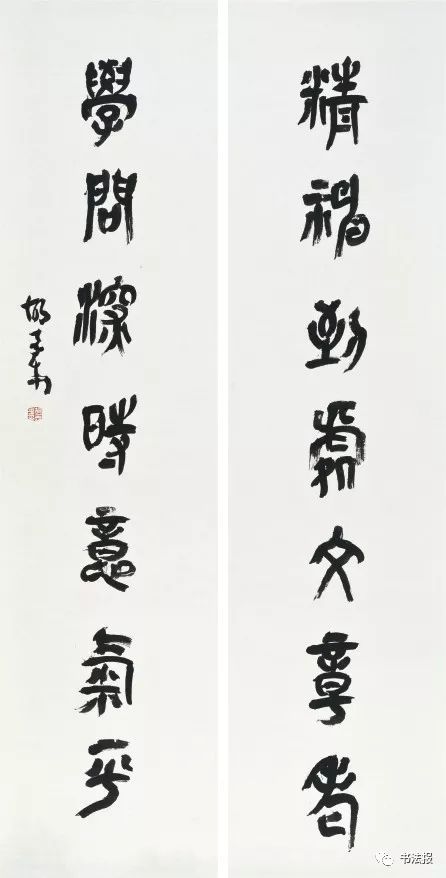 精神到處文章老
學問深時意氣平
书法报